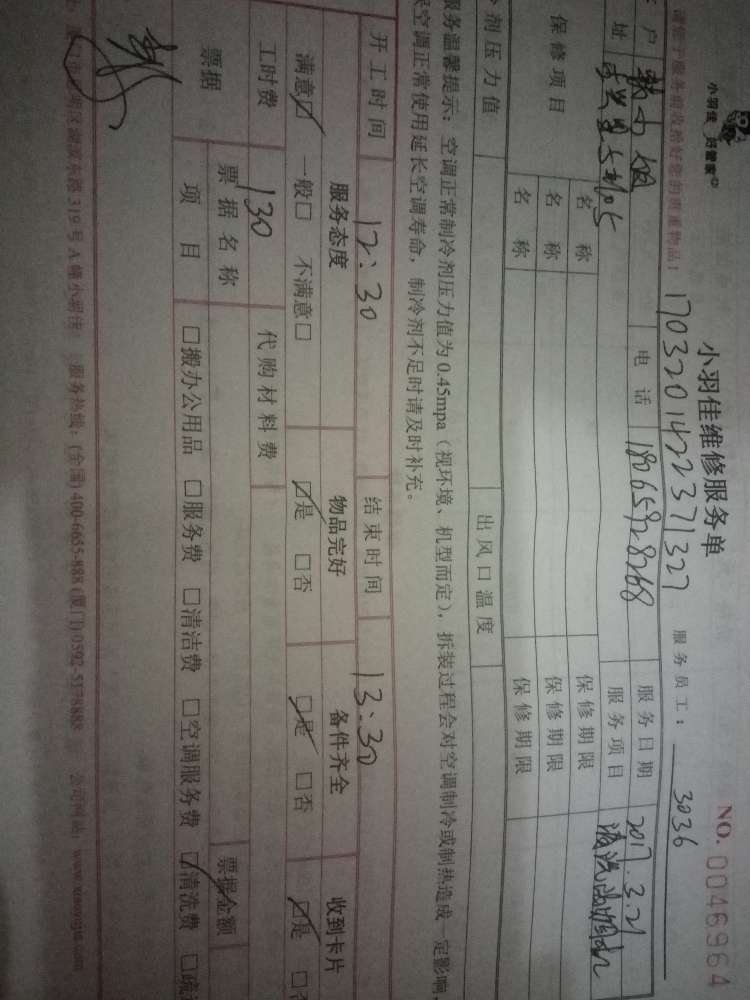 小羽佳 好管家
小羽佳维修服务单
NO. 0046964
请在于服务前收拾好您的贵重物品!
1703201422371327
服务员工: 3036
户
电话 18065928268
服务日期 2017.3.21
址
服务项目 清洗
保修项目
名称
保修期限
名称
保修期限
名称
保修期限
剂压力值
出风口温度
服务温馨提示: 空调正常制冷剂压力值为0.45mpa(视环境、机型而定), 拆装过程会对空调制冷或制热造成 定影响
空调正常使用延长空调寿命, 制冷剂不足时请及时补充。
开工时间 12:30
结束时间 13:30
服务态度
物品完好
备件齐全
收到卡片
满意☑ 一般□ 不满意□
☑是 □否
☑是 □否
☑是
工时费 130
代购材料费
票据
票据名称
票据金额
项目
□搬办公用品 □服务费 □清洁费 □空调服务费 ☑清洗费
明区湖滨东路319号A幢小羽佳
服务热线: (全国)400-6655-888 (厦门)0592-5178888
公司网站: www.xiaoyujia.com